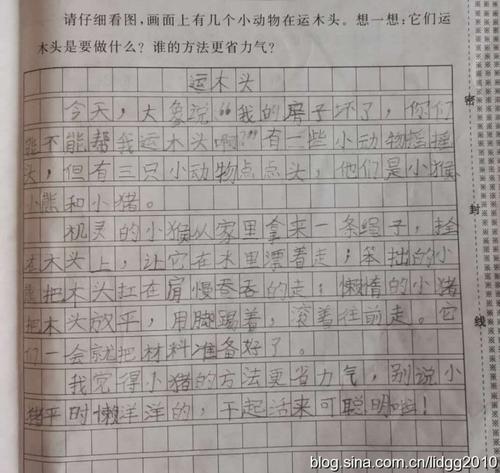 请仔细看图，画面上有几个小动物在运木头。想一想：它们运
木头是要做什么？谁的方法更省力气？
运木头
今天，大象说“我的房子坏了，你们
能不能帮我运木头啊？”有一些小动物摇摇
头，但有三只小动物点点头，他们是小猴
小熊和小猪。
机灵的小猴从家里拿来一条绳子，拴
在木头上，让它在水里漂着走；笨拙的小
熊把木头扛在肩慢吞吞的走；懒惰的小猪
把木头放平，用脚踢着，滚着往前走。它
们一会就把材料准备好了。
我觉得小猪的方法更省力气，别说小
猪平时懒洋洋的，干起活来可聪明啦！
密
封
线
blog.sina.com.cn/lidgg2010